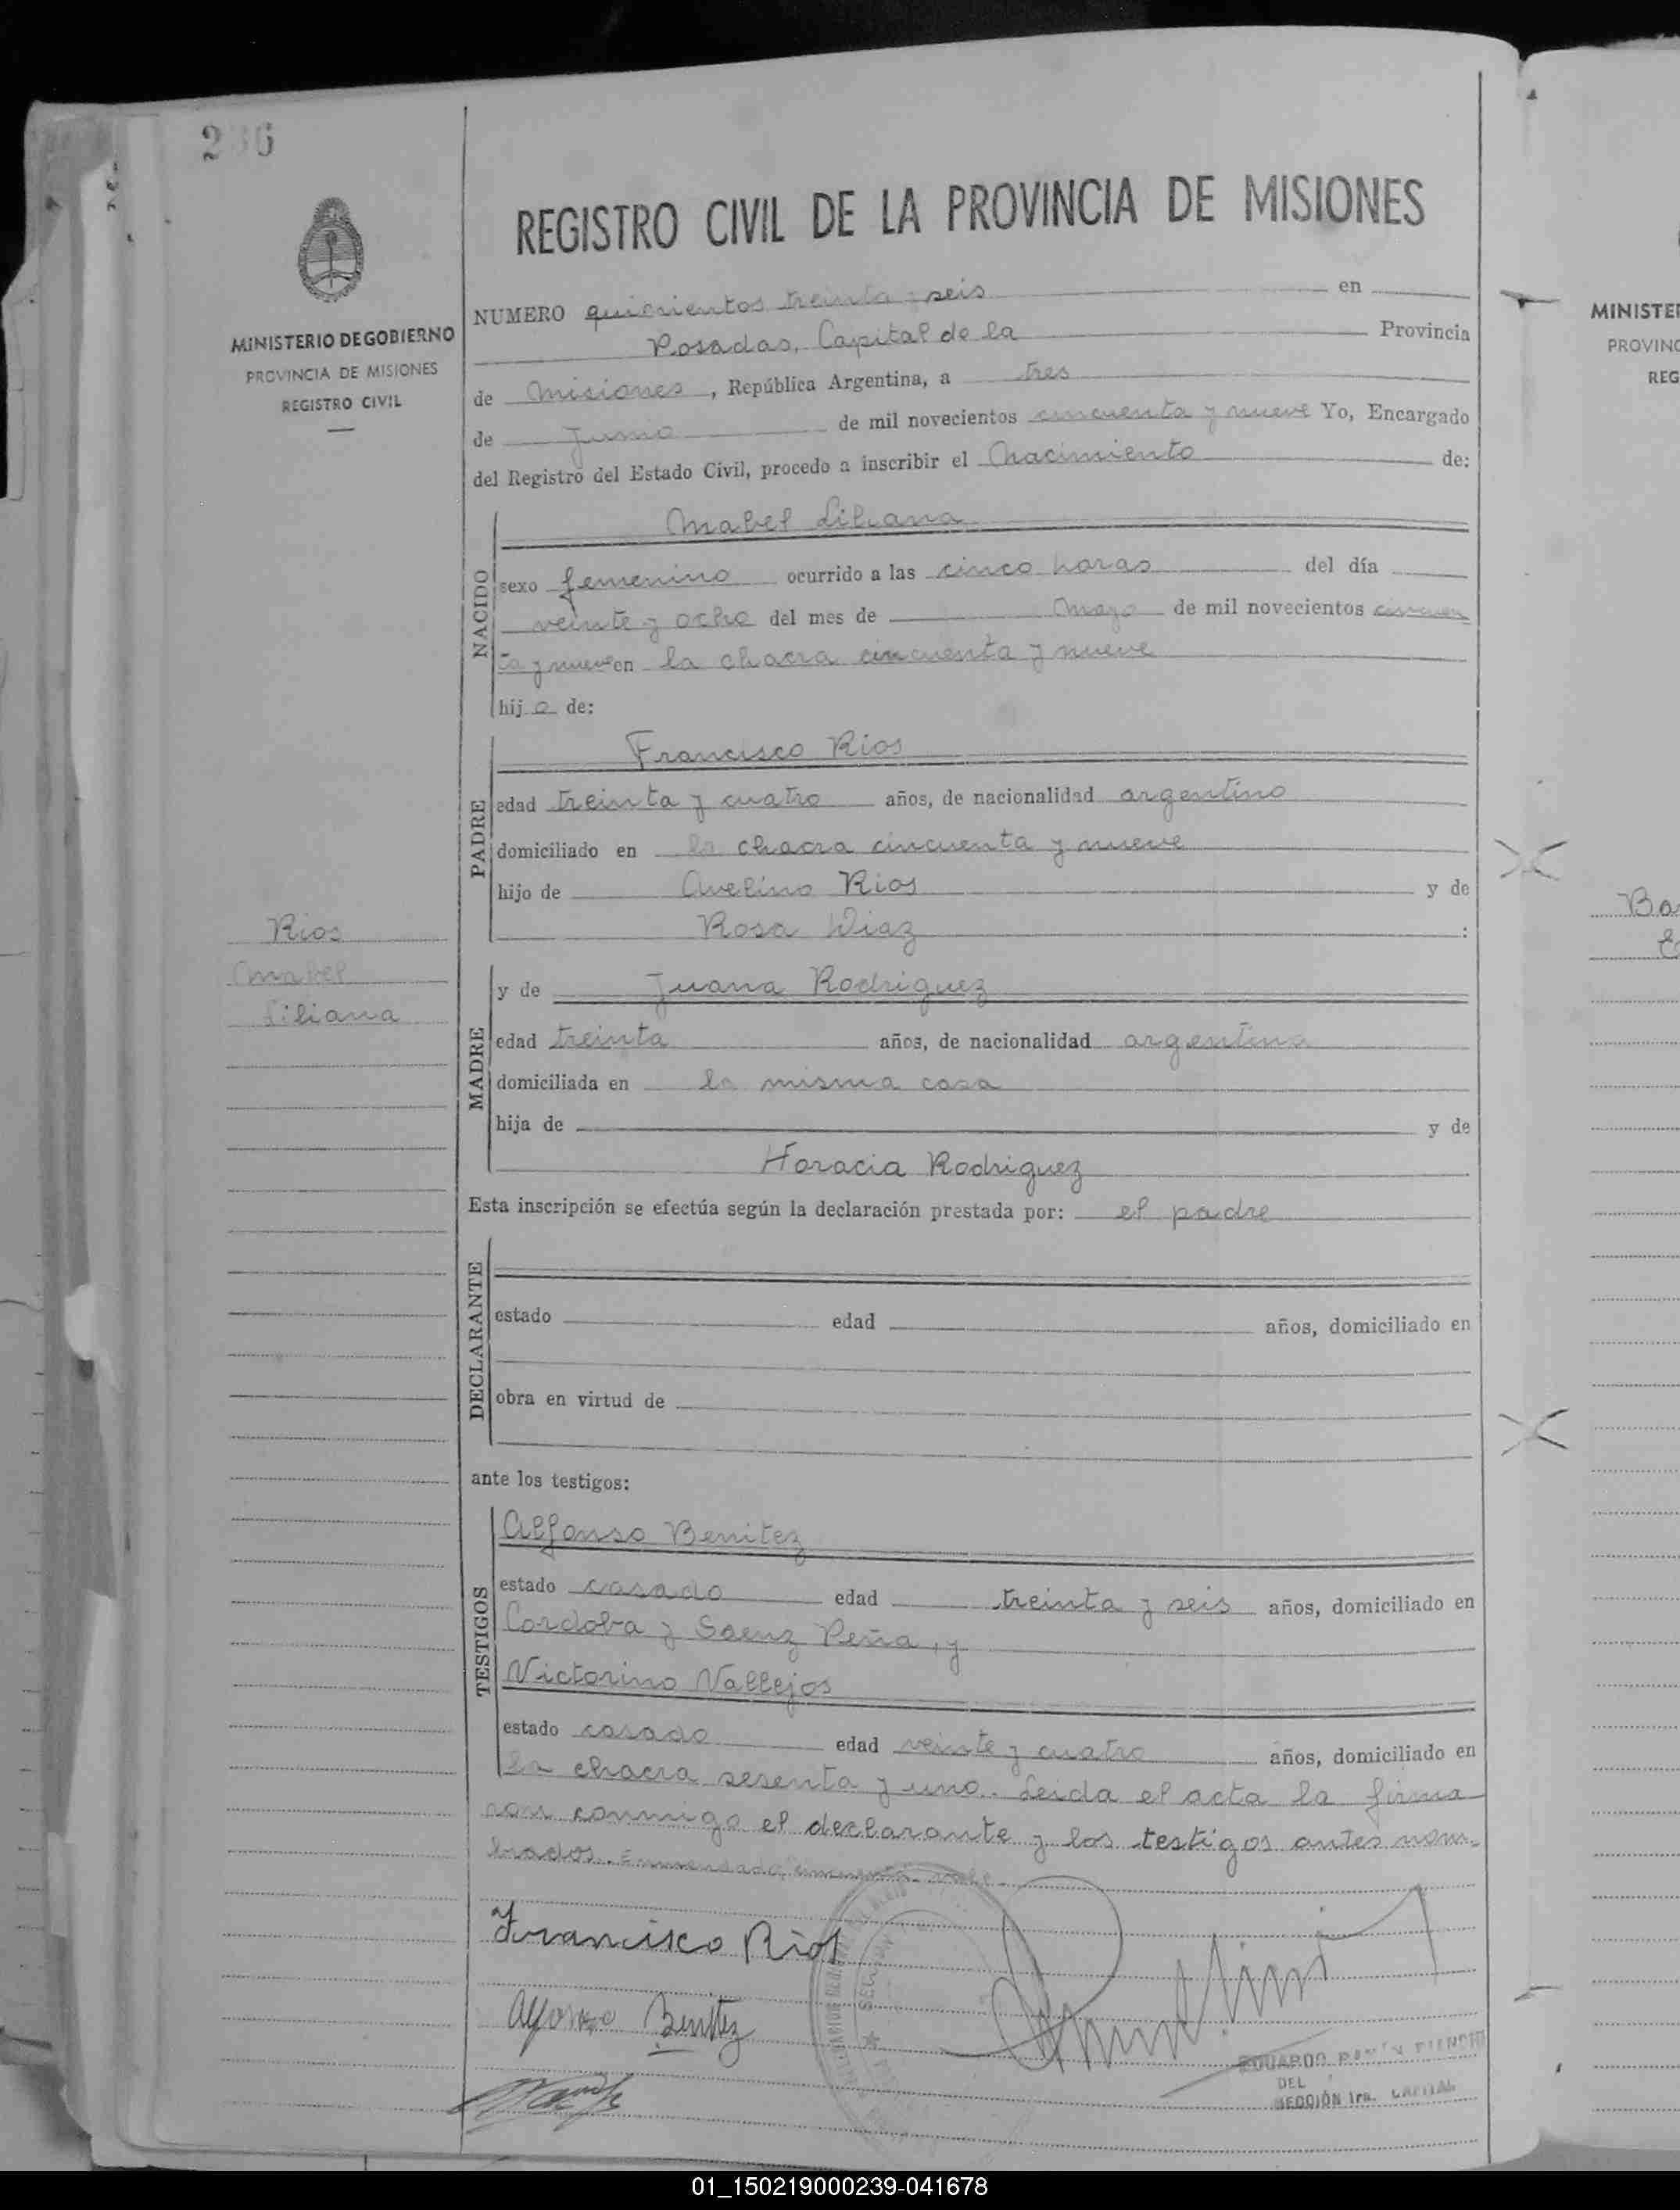 REGISTRO CIVIL DE LA PROVINCIA DE MISIONES
MINISTERIO DE GOBIERNO
PROVINCIA DE MISIONES
REGISTRO CIVIL
NUMERO quinientos treinta y seis en
Posadas, Capital de la Provincia
de Misiones, República Argentina, a tres
de Junio de mil novecientos cincuenta y nueve Yo, Encargado
del Registro del Estado Civil, procedo a inscribir el Nacimiento de:
NACIDO
Mabel Liliana
sexo femenino ocurrido a las cinco horas del día
veinte y ocho del mes de Mayo de mil novecientos cincuen
ta y nueve en la chacra cincuenta y nueve
hija de:
PADRE
Francisco Rios
edad treinta y cuatro años, de nacionalidad argentino
domiciliado en la chacra cincuenta y nueve
hijo de Avelino Rios y de
Rosa Diaz :
Rios
Mabel
Liliana
MADRE
y de Juana Rodriguez
edad treinta años, de nacionalidad argentina
domiciliada en la misma casa
hija de y de
Horacia Rodriguez
Esta inscripción se efectúa según la declaración prestada por: el padre
DECLARANTE
estado edad años, domiciliado en
obra en virtud de
ante los testigos:
TESTIGOS
Alfonso Benitez
estado casado edad treinta y seis años, domiciliado en
Cordoba y Saenz Peña, y
Victorino Vallejos
estado casado edad veinte y cuatro años, domiciliado en
la chacra sesenta y uno. Leida el acta la firma
ron conmigo el declarante y los testigos antes nom-
brados. Enmendado "cincuenta" vale.
Francisco Rios
Alfonso Benitez
EDUARDO RAMÓN
DEL
SECCIÓN 1ra. CAPITAL
MINISTE
PROVINC
REG
01_150219000239-041678